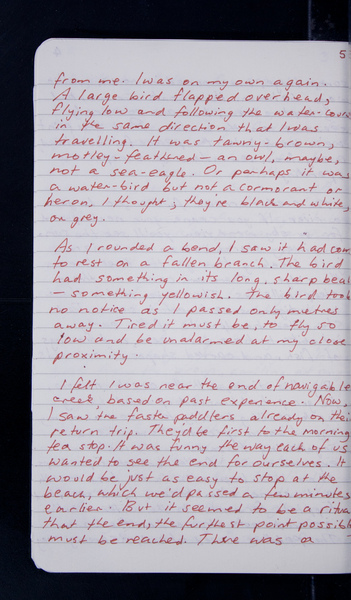 5
from me. I was on my own again.
A large bird flapped overhead,
flying low and following the water-course
in the same direction that I was
travelling. It was tawny-brown,
motley-feathered – an owl, maybe,
not a sea-eagle. Or perhaps it was
a water-bird but not a cormorant or
heron, I thought; they're black and white,
or grey.
As I rounded a bend, I saw it had come
to rest on a fallen branch. The bird
had something in its long, sharp beak
– something yellowish. The bird took
no notice as I passed only metres
away. Tired it must be, to fly so
low and be unalarmed at my close
proximity.
I felt I was near the end of navigable
creek based on past experience. Now,
I saw the faster paddlers already on their
return trip. They'd be first to the morning
tea stop. It was funny the way each of us
wanted to see the end for ourselves. It
would be just as easy to stop at the
beach, which we'd passed a few minutes
earlier. But it seemed to be a ritual
that the end, the furthest point possible
must be reached. There was a